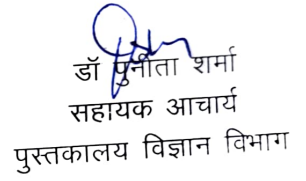 डॉ पुनीता शर्मा
सहायक आचार्य
पुस्तकालय विज्ञान विभाग